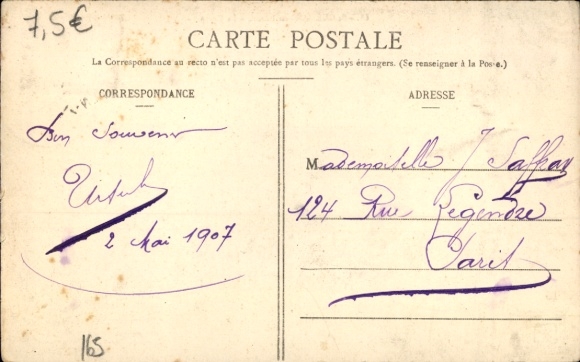 7,5€
CARTE POSTALE
La Correspondance au recto n'est pas acceptée par tous les pays étrangers. (Se renseigner à la Poste.)
CORRESPONDANCE
Bon Souvenir
2 Mai 1907
165
ADRESSE
Mademoiselle J Saffray
124 Rue Legendre
Paris